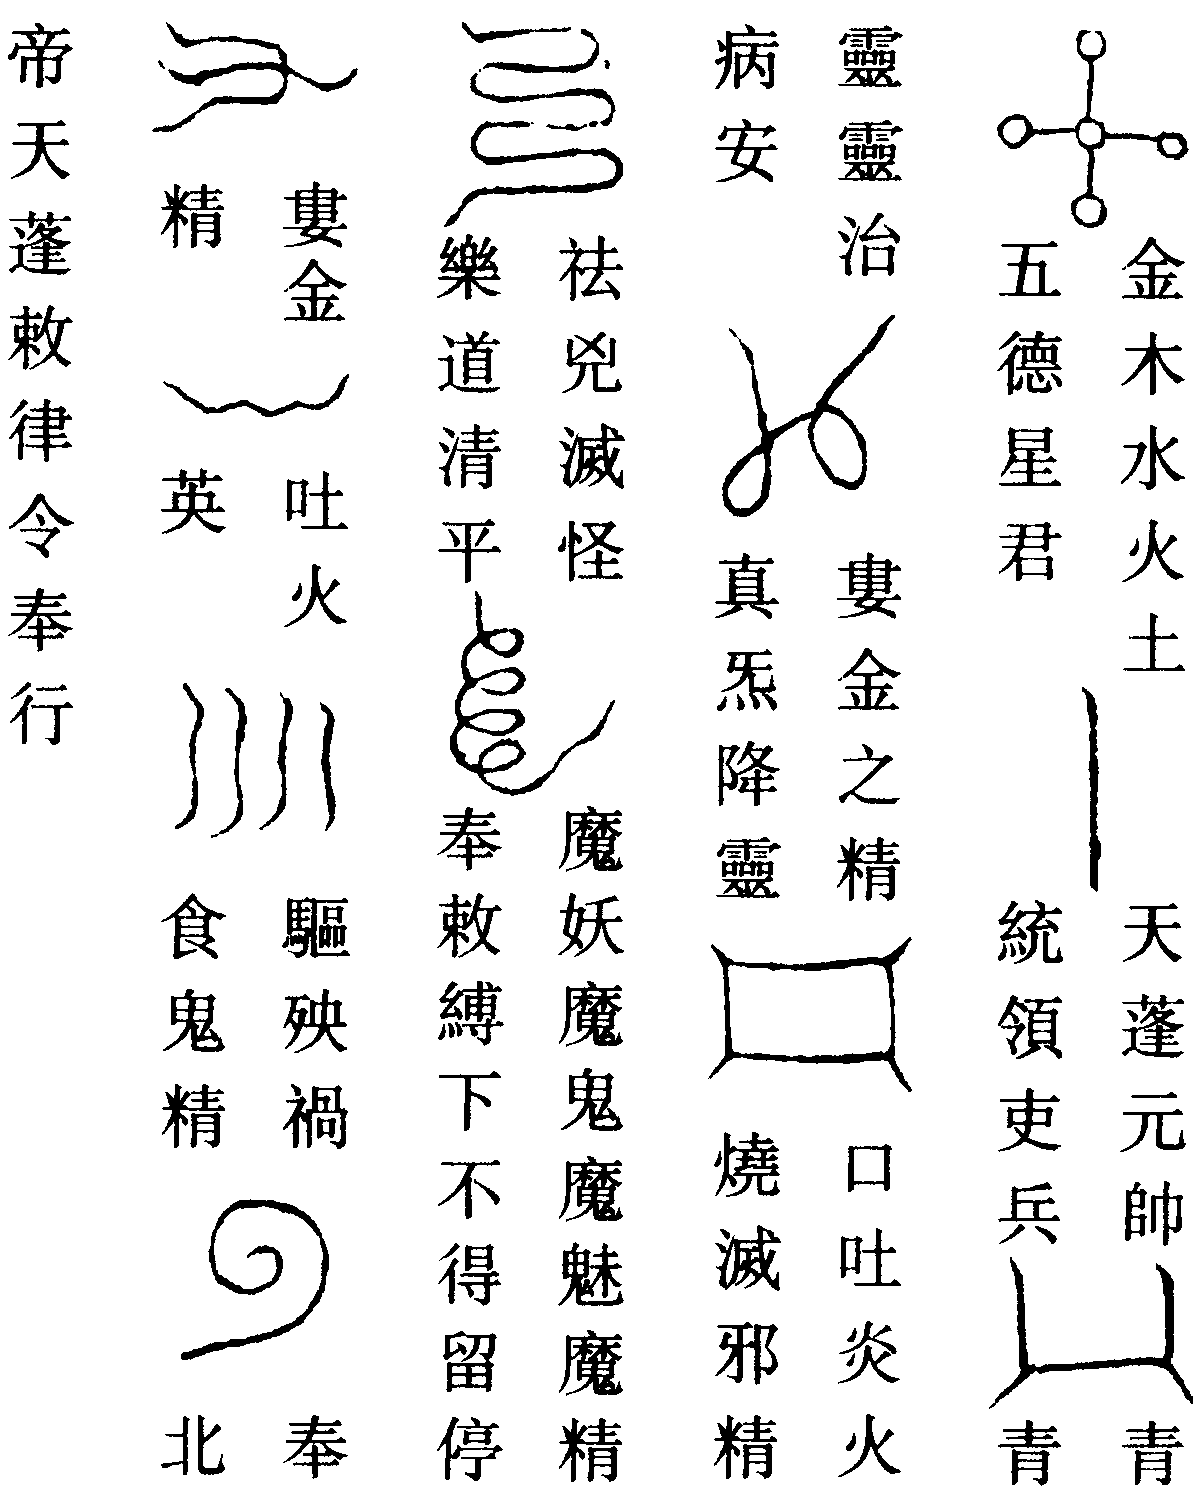 金木水火土
五德星君
天蓬元帥
統領吏兵
青
青
靈靈治
病安
婁金之精
真炁降靈
口吐炎火
燒滅邪精
祛兇滅怪
樂道清平
魔妖魔鬼魔魅魔精
奉敕縛下不得留停
婁金
精
吐火
英
驅殃禍
食鬼精
奉
北
帝天蓬敕律令奉行